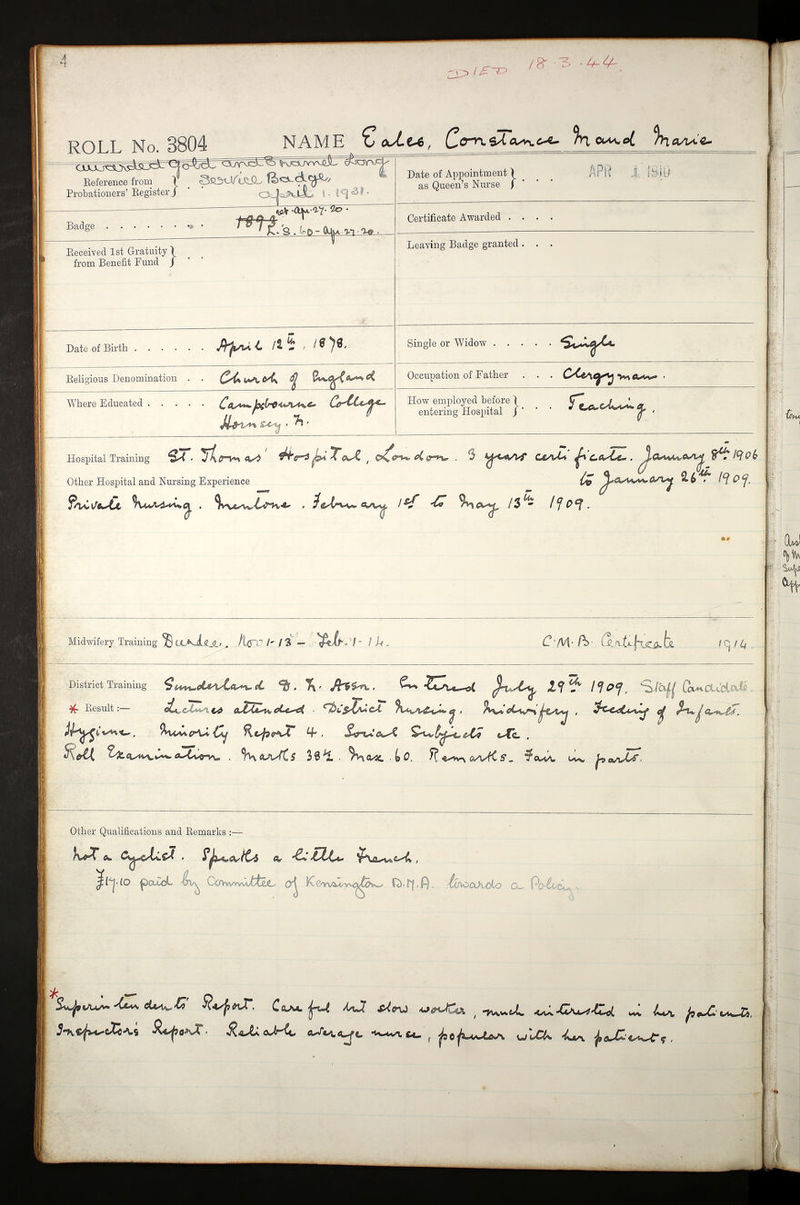 4
DIED 18.3.44.
ROLL No. 3804 NAME Eales, Constance Maud Marie
awarded Gold and Enamel Long
Service Badge
Reference from Probationers' Register
April 1. 1931.
Date of Appointment as Queen's Nurse . . . APR 1 1910
Badge . . . . . . .
R.S. 60 - Apr. 27. 20.
Certificate Awarded . . . .
Received 1st Gratuity from Benefit Fund . .
Leaving Badge granted . . .
Date of Birth . . . . . . April 12th, 1878.
Single or Widow . . . . . Single
Religious Denomination . . Church of England
Occupation of Father . . . Clergyman.
Where Educated . . . . . Cambridge College
Hornsey. N.
How employed before entering Hospital . . . Teaching.
Hospital Training St. Thomas' Hospital, London. 3 years' certificate. January 8th 1906
Other Hospital and Nursing Experience to January 26th 1909.
Private Nursing. . February 1st to May 13th 1909.
Midwifery Training Nov: 1-13 - Feb. 1-14. C.M.B. Certificate 1914
District Training Sunderland D.N. Assn. Entered July 29th 1909. Staff Candidate.
* Result:— Lectures attended. District Nursing. Midwifery. Feeding of Infants.
Hygiene. Minority Report 4. Social Subjects etc.
Roll Examination. Marks 38½. Max. 60. Remarks. Fair in parts.
Other Qualifications and Remarks :—
Not a Cyclist. Speaks a little French.
£17.10 paid by Committee of Kensington D.N.A. towards a Policy.
*Superintendent's Report. Careful but slow worker, much interested in her patients.
Inspector's Report. Reliable average nurse, popular with her patients.